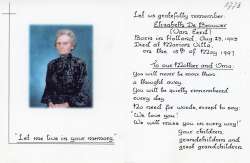 Let us gratefully remember
Elizabeth De Brouwer
(Van Eerd)
Born in Holland Aug 29, 1902
Died at Marian Villa
on the 18th of May 1997
To our Mother and Oma.
You will never be more than
a thought away
You will be quietly remembered
every day.
No need for words, except to say:
"We love you!
We will miss you in every way!"
Your children,
grandchildren and
great grandchildren
"Let me live in your memory"